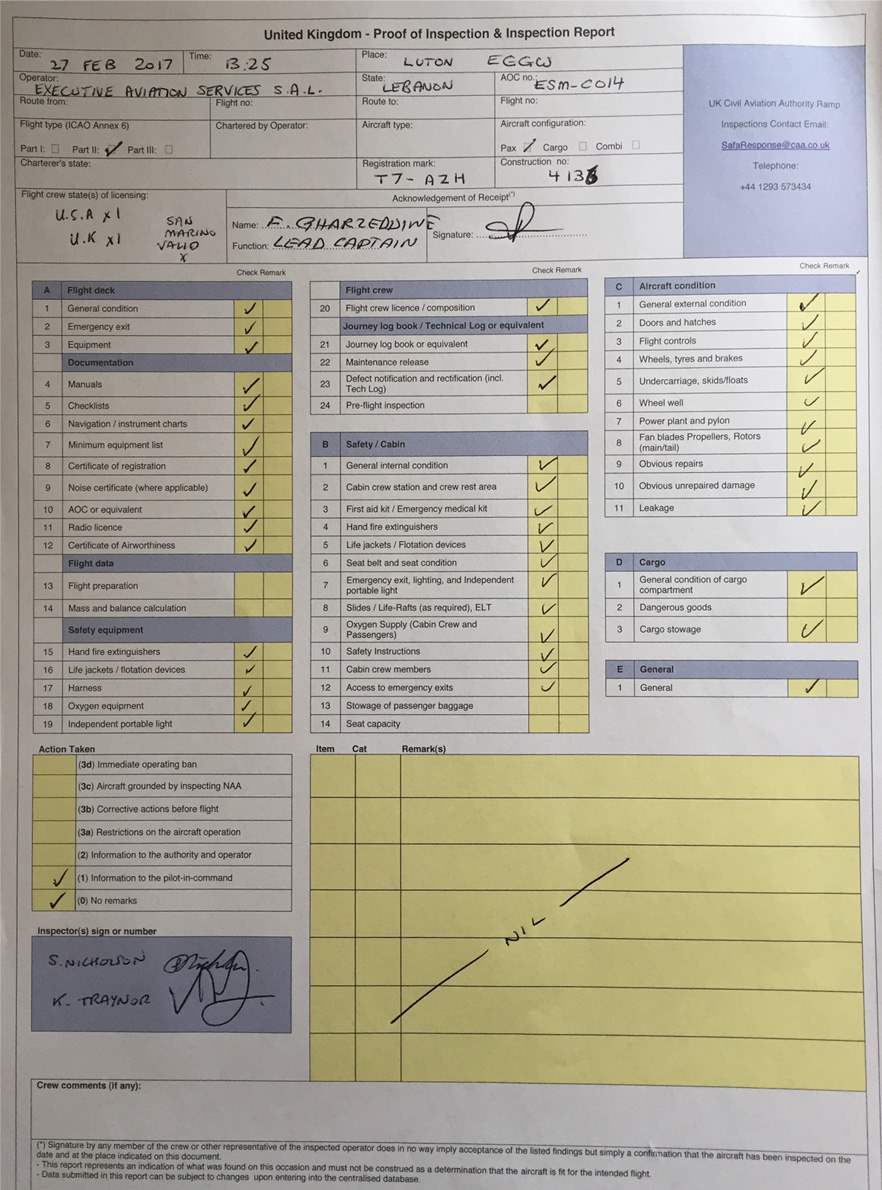 United Kingdom - Proof of Inspection & Inspection Report
Date: 27 FEB 2017 Time: 13:25 Place: LUTON EGGW
Operator: EXECUTIVE AVIATION SERVICES S.A.L. State: LEBANON AOC no.: ESM-C014
Route from: Flight no: Route to: Flight no:
Flight type (ICAO Annex 6) Chartered by Operator: Aircraft type: Aircraft configuration:
Part I: Part II: ✓ Part III: Pax ✓ Cargo Combi
Charterer's state: Registration mark: T7-AZH Construction no: 413
UK Civil Aviation Authority Ramp
Inspections Contact Email:
SafaResponse@caa.co.uk
Telephone:
+44 1293 573434
Flight crew state(s) of licensing:
U.S.A x1
U.K x1
SAN
MARINO
VALID
x
Acknowledgement of Receipt(*)
Name: F. GHARZEDDINE
Function: LEAD CAPTAIN
Signature:
Check Remark
A Flight deck
1 General condition ✓
2 Emergency exit ✓
3 Equipment ✓
Documentation
4 Manuals ✓
5 Checklists ✓
6 Navigation / instrument charts ✓
7 Minimum equipment list ✓
8 Certificate of registration ✓
9 Noise certificate (where applicable) ✓
10 AOC or equivalent ✓
11 Radio licence ✓
12 Certificate of Airworthiness ✓
Flight data
13 Flight preparation
14 Mass and balance calculation
Safety equipment
15 Hand fire extinguishers ✓
16 Life jackets / flotation devices ✓
17 Harness ✓
18 Oxygen equipment ✓
19 Independent portable light ✓
Check Remark
Flight crew
20 Flight crew licence / composition ✓
Journey log book / Technical Log or equivalent
21 Journey log book or equivalent ✓
22 Maintenance release ✓
23 Defect notification and rectification (incl.
Tech Log) ✓
24 Pre-flight inspection
B Safety / Cabin
1 General internal condition ✓
2 Cabin crew station and crew rest area ✓
3 First aid kit / Emergency medical kit ✓
4 Hand fire extinguishers ✓
5 Life jackets / Flotation devices ✓
6 Seat belt and seat condition ✓
7 Emergency exit, lighting, and Independent
portable light ✓
8 Slides / Life-Rafts (as required), ELT ✓
9 Oxygen Supply (Cabin Crew and
Passengers) ✓
10 Safety Instructions ✓
11 Cabin crew members ✓
12 Access to emergency exits ✓
13 Stowage of passenger baggage
14 Seat capacity
Check Remark
C Aircraft condition
1 General external condition ✓
2 Doors and hatches ✓
3 Flight controls ✓
4 Wheels, tyres and brakes ✓
5 Undercarriage, skids/floats ✓
6 Wheel well ✓
7 Power plant and pylon ✓
8 Fan blades Propellers, Rotors
(main/tail) ✓
9 Obvious repairs ✓
10 Obvious unrepaired damage ✓
11 Leakage ✓
D Cargo
1 General condition of cargo
compartment ✓
2 Dangerous goods
3 Cargo stowage ✓
E General
1 General ✓
Action Taken
(3d) Immediate operating ban
(3c) Aircraft grounded by inspecting NAA
(3b) Corrective actions before flight
(3a) Restrictions on the aircraft operation
(2) Information to the authority and operator
✓ (1) Information to the pilot-in-command
✓ (0) No remarks
Item Cat Remark(s)
NIL
Inspector(s) sign or number
S. NICHOLSON
K. TRAYNOR
Crew comments (if any):
(*) Signature by any member of the crew or other representative of the inspected operator does in no way imply acceptance of the listed findings but simply a confirmation that the aircraft has been inspected on the
date and at the place indicated on this document.
- This report represents an indication of what was found on this occasion and must not be construed as a determination that the aircraft is fit for the intended flight.
- Data submitted in this report can be subject to changes upon entering into the centralised database.